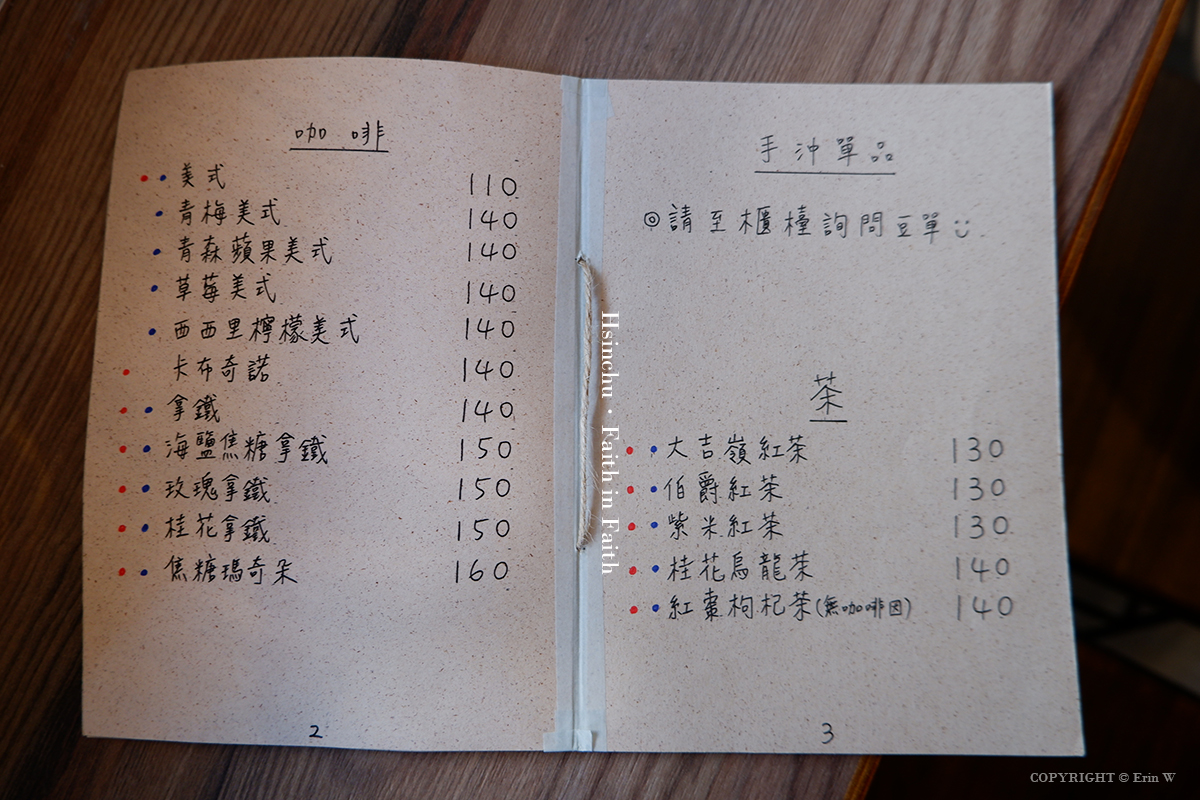 咖啡
美式 110
青梅美式 140
青森蘋果美式 140
草莓美式 140
西西里檸檬美式 140
卡布奇諾 140
拿鐵 140
海鹽焦糖拿鐵 150
玫瑰拿鐵 150
桂花拿鐵 150
焦糖瑪奇朵 160
2
手沖單品
◎請至櫃檯詢問豆單
茶
大吉嶺紅茶 130
伯爵紅茶 130
紫米紅茶 130
桂花烏龍茶 140
紅棗枸杞茶(無咖啡因) 140
3
Hsinchu · Faith in Faith
COPYRIGHT © Erin W